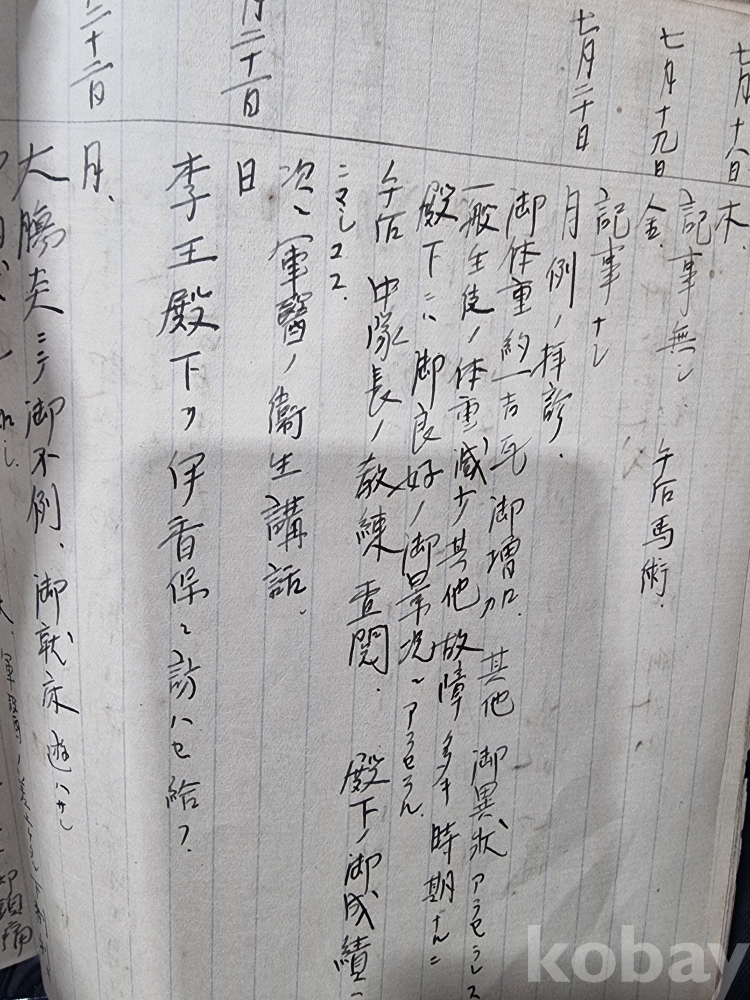 七月十八日
木、
記事無し
七月十九日
金、
午后馬術、
記事ナシ
七月二十日
月例ノ拝診、
御体重約一吉瓦御増加、其他御異状アラセラレス
一般生徒ノ体重減少其他故障多キ時期ナルニ
殿下ニハ御良好ノ御景況ニアラセラル
午后中隊長ノ教練査閲、殿下ノ御成績
ニマシマス、
次ニ軍醫ノ衛生講話、
月二十一日
日
李王殿下ヲ伊香保ニ訪ハセ給フ、
二十二日
月、
大腸炎ニテ御不例、御就床遊ハサレ
軍醫ノ
御頭痛
kobay